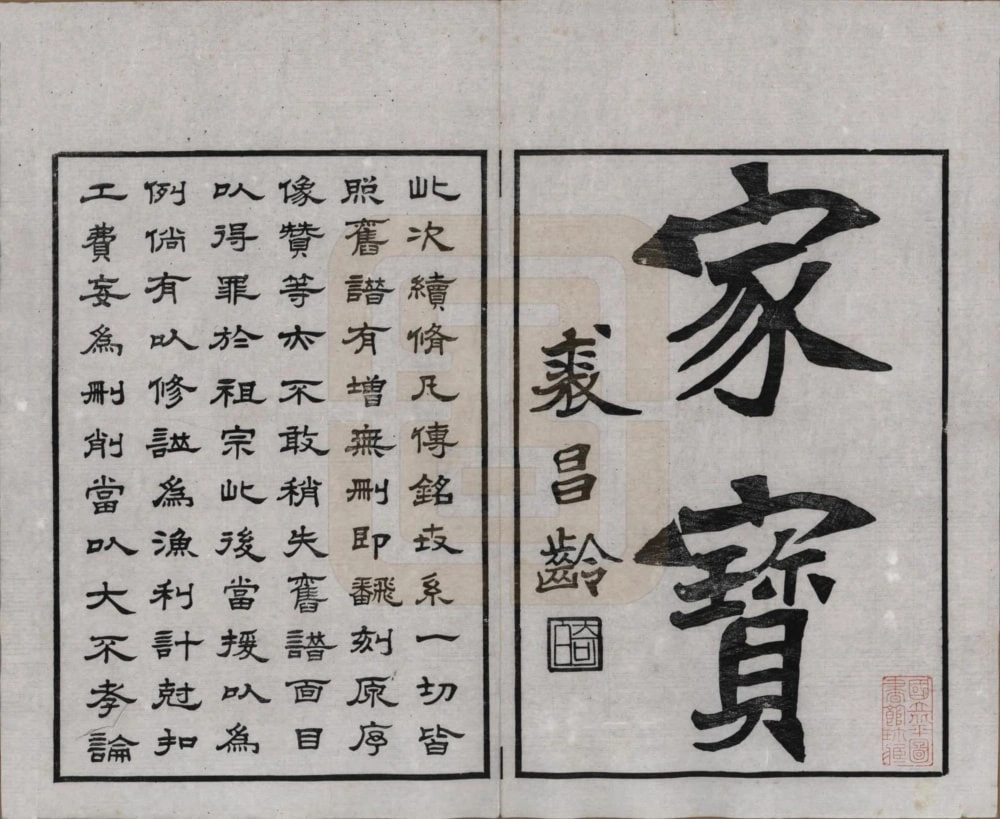 家寶
裘昌齡
此次續脩凡傳銘世系一切皆
照舊譜有增無刪即翻刻原序
像贊等亦不敢稍失舊譜面目
以得罪於祖宗此後當援以為
例倘有以修譜為漁利計尅扣
工費妄為刪削當以大不孝論
國立北平圖
書館收藏